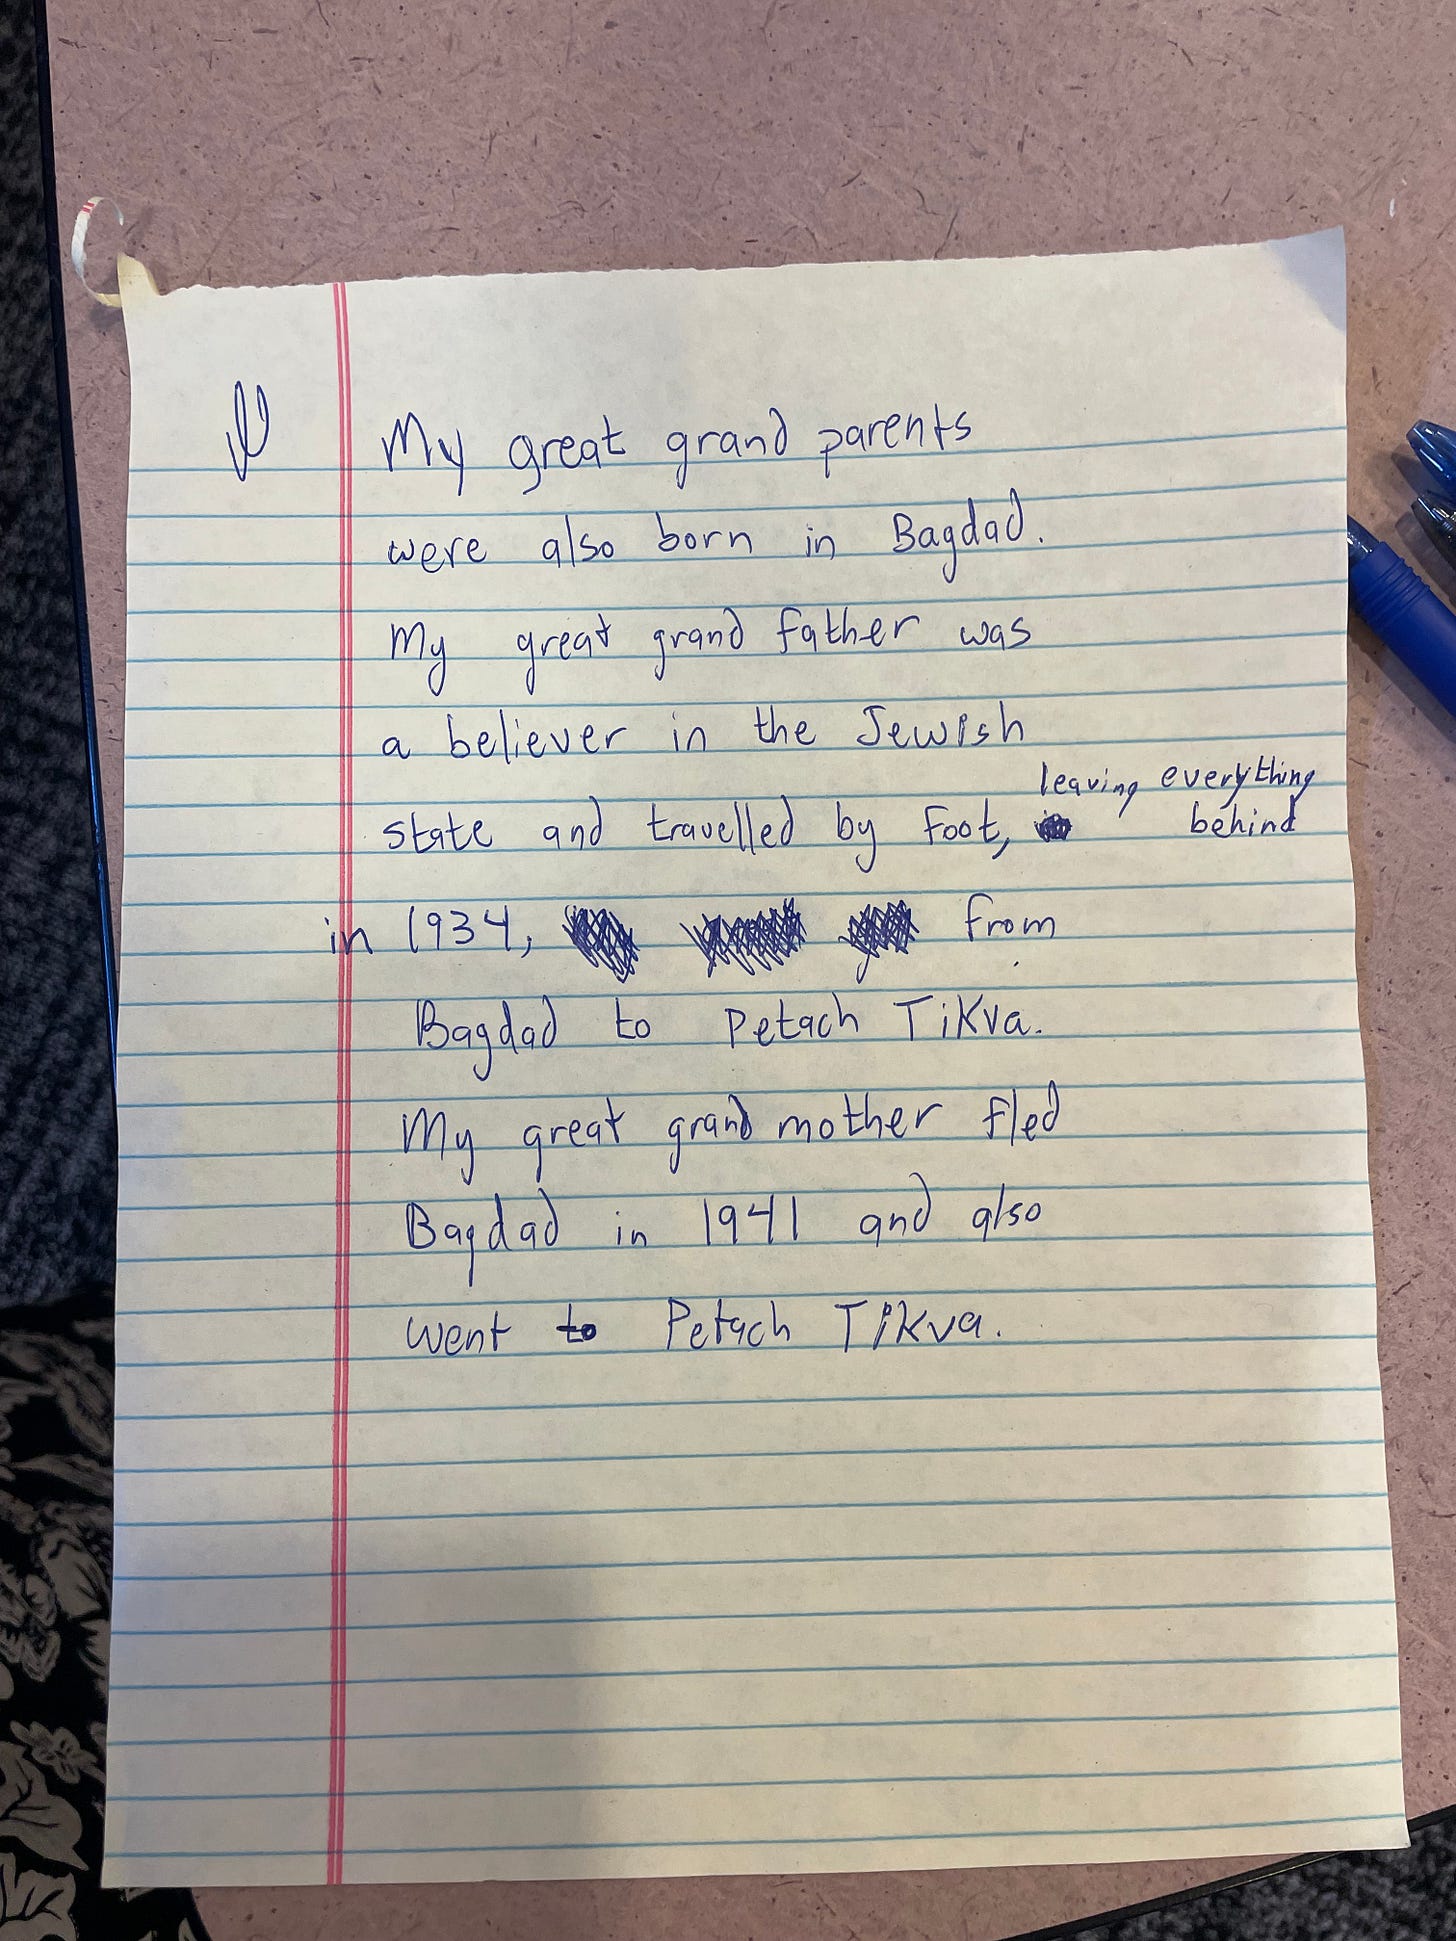 My great grand parents
were also born in Bagdad.
My great grand father was
a believer in the Jewish
state and travelled by Foot, leaving everything
behind
in 1934, from
Bagdad to Petach Tikva.
My great grand mother fled
Bagdad in 1941 and also
went to Petach Tikva.